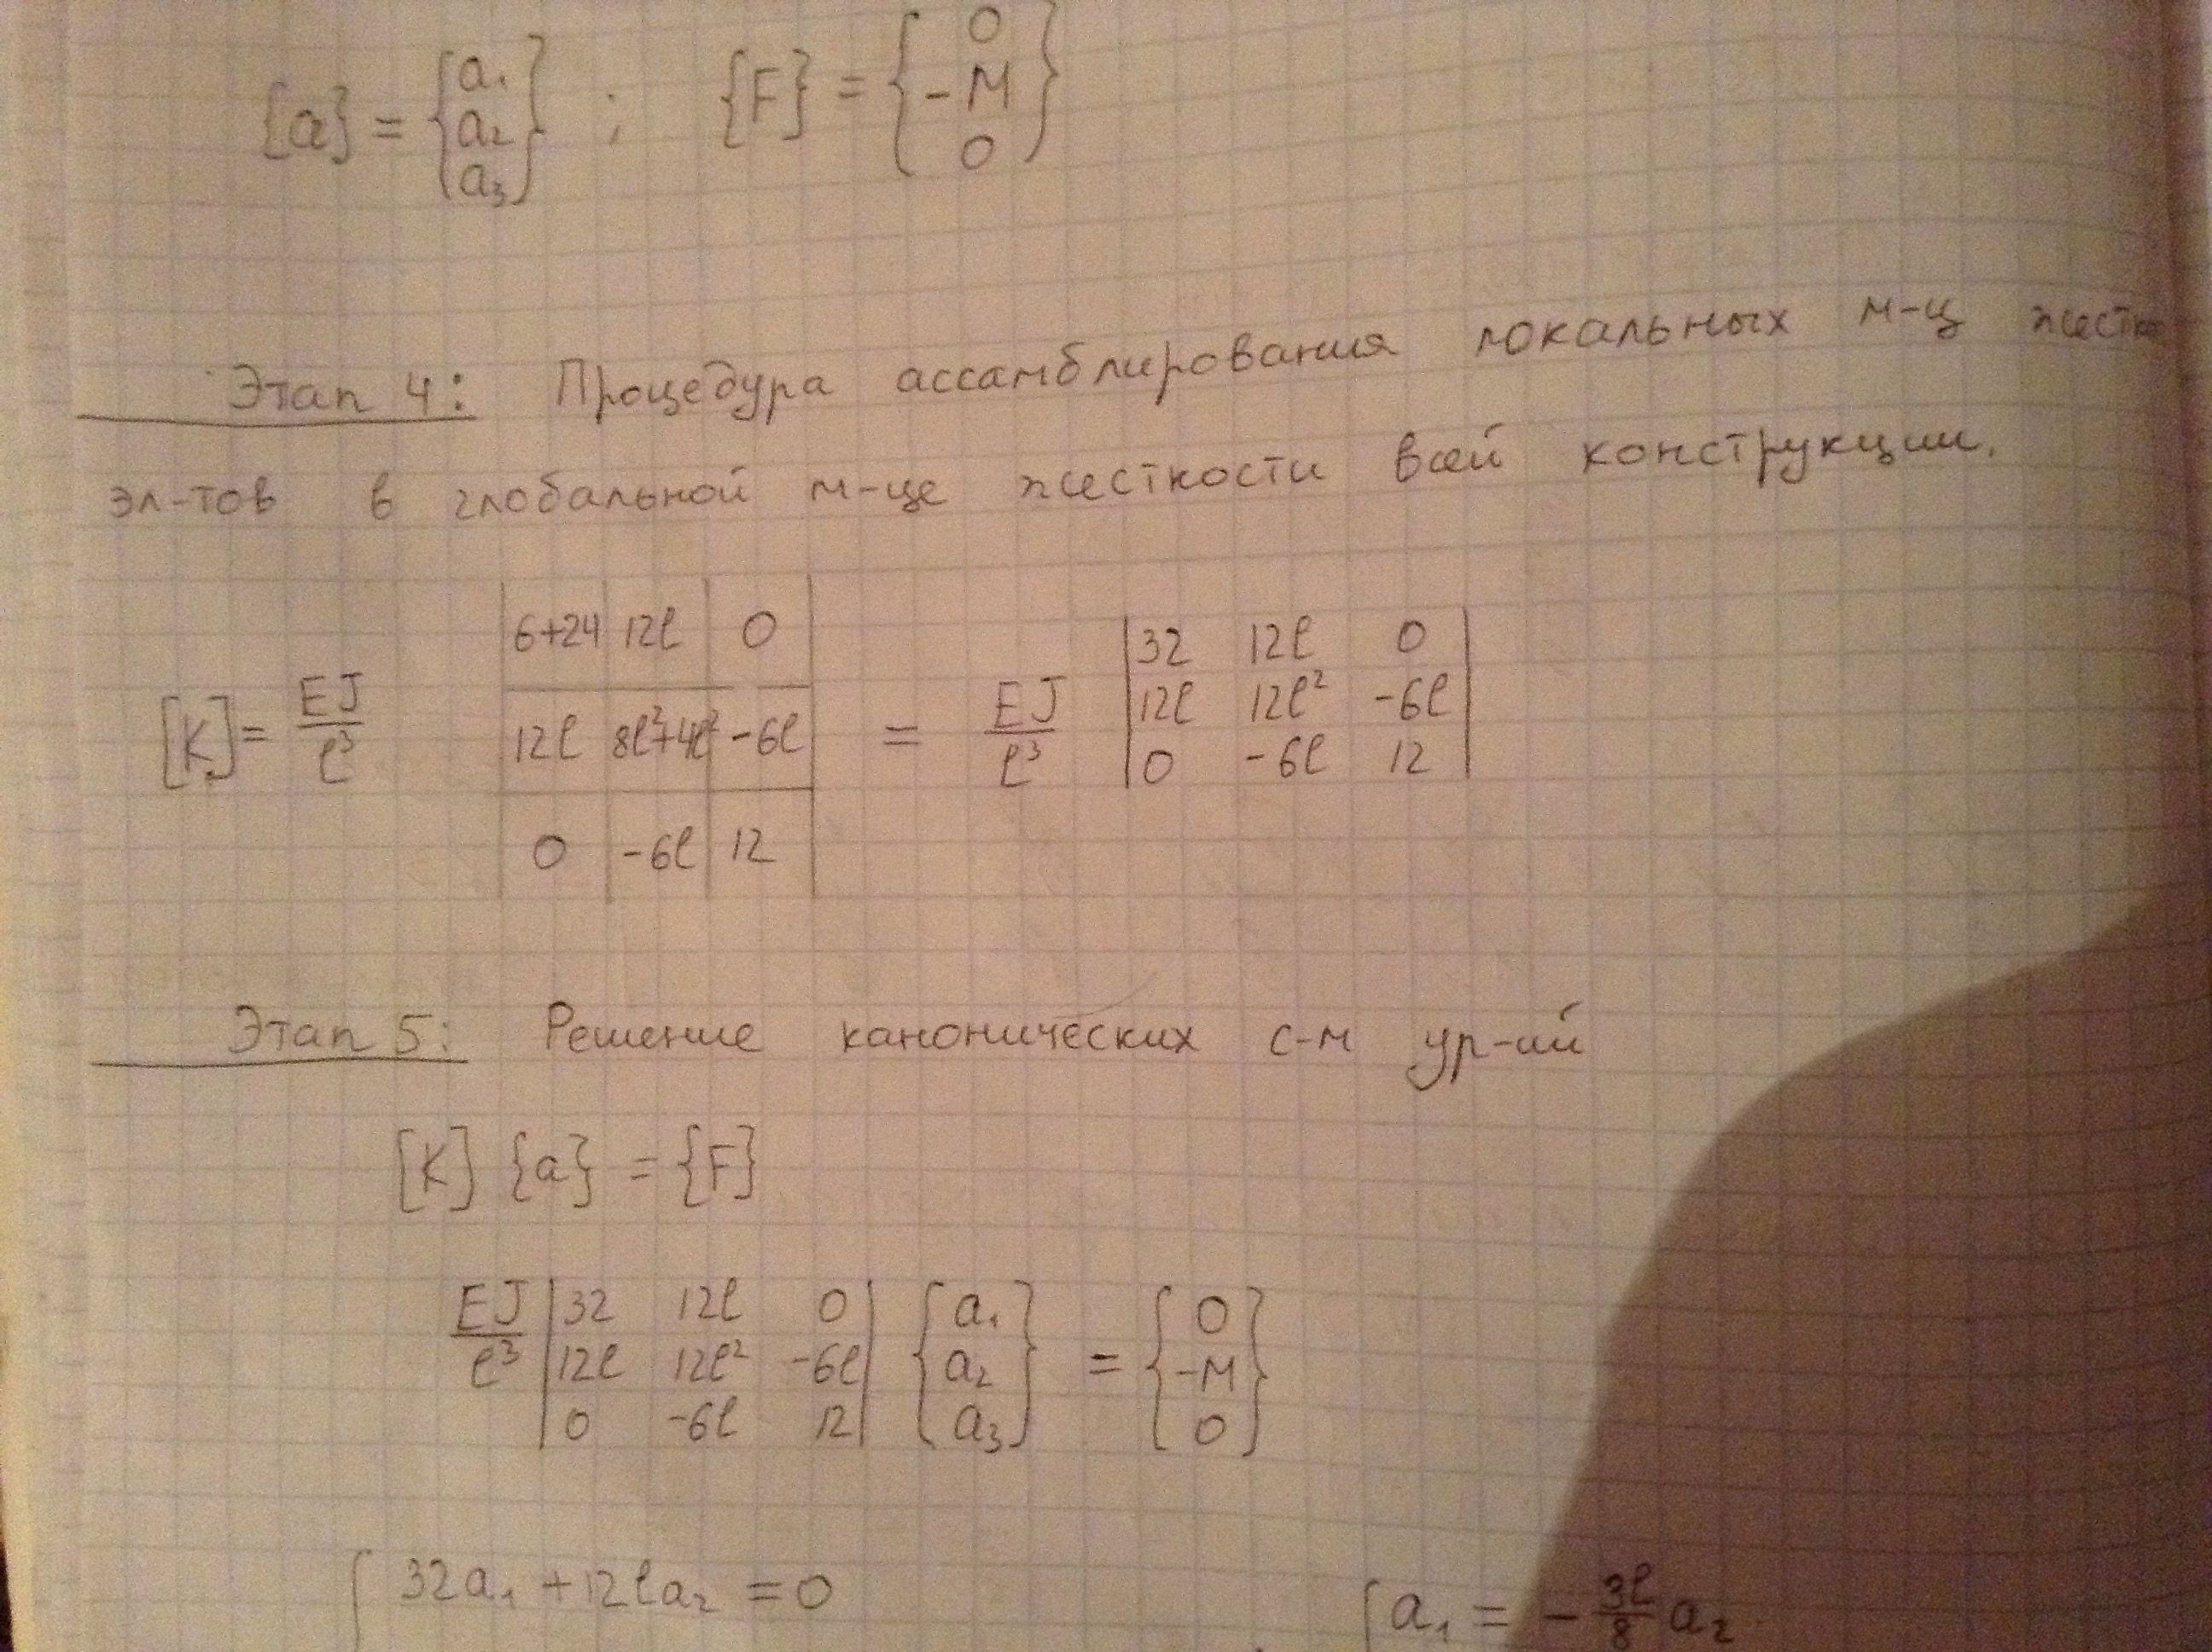 {a} = {a₁ a₂ a₃} ; {F} = {0 -M 0}
Этап 4: Процедура ассамблирования локальных м-ц
эл-тов в глобальной м-це жесткости всей конструкции.
[K] = EJ/ℓ³ |6+24 12ℓ 0| = EJ/ℓ³ |32 12ℓ 0|
|12ℓ 8ℓ²+4ℓ² -6ℓ| |12ℓ 12ℓ² -6ℓ|
|0 -6ℓ 12| |0 -6ℓ 12|
Этап 5: Решение канонических с-м ур-ий
[K] {a} = {F}
EJ/ℓ³ |32 12ℓ 0| {a₁} = {0}
|12ℓ 12ℓ² -6ℓ| {a₂} {-M}
|0 -6ℓ 12| {a₃} {0}
{ 32a₁ + 12ℓa₂ = 0 { a₁ = - 3ℓ/8 a₂